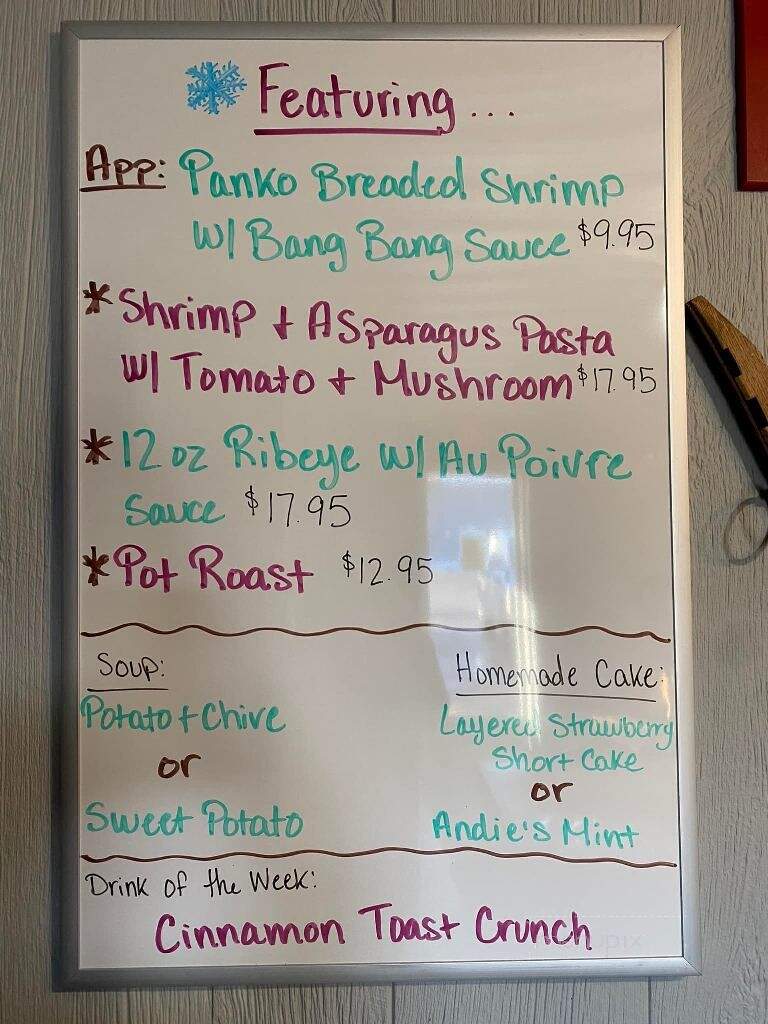 Featuring...
App: Panko Breaded Shrimp
w/ Bang Bang Sauce $9.95
* Shrimp + Asparagus Pasta
w/ Tomato + Mushroom $17.95
* 12 oz Ribeye w/ Au Poivre
Sauce $17.95
* Pot Roast $12.95
Soup:
Potato + Chive
or
Sweet Potato
Homemade Cake:
Layered Strawberry
Short Cake
or
Andie's Mint
Drink of the Week:
Cinnamon Toast Crunch